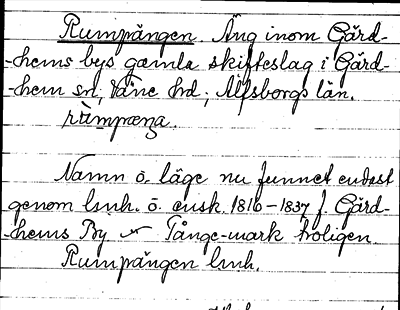 Rumpängen. Äng inom Gärd-
-hems bys gamla skifteslag i Gärd-
-hem sn, Väne hd; Älfsborgs län.
rùmpæŋa.
Namn o. läge nu funnet endast
genom lmh. o. ensk. 1816-1837 f. Gärd-
-hems By Tånge-mark troligen
Rumpängen lmh.